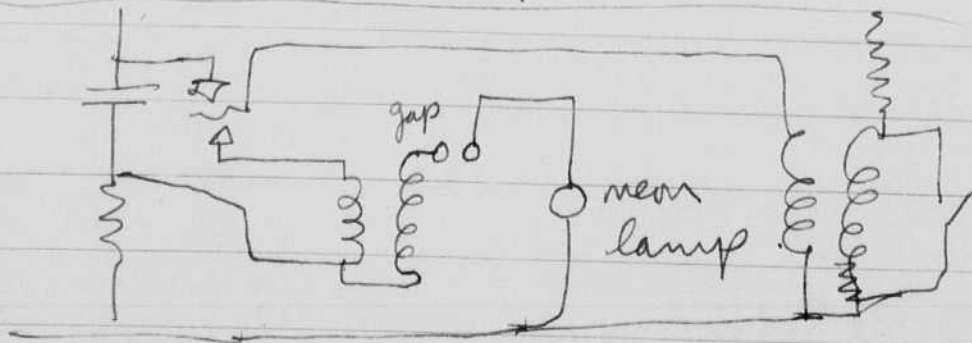 gap
neon
lamp